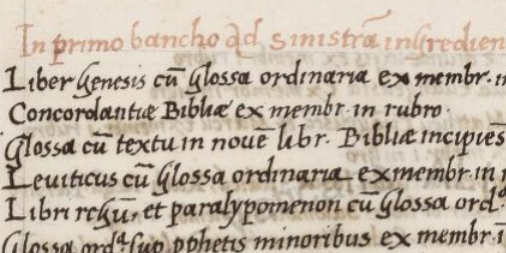 In primo bancho ad sinistrã ingredien
Liber Genesis cũ glossa ordinaria ex membr. in
Concordantiæ Bibliæ ex membr. in rubro.
Glossa cũ textu in nouẽ libr. Bibliæ incipiẽs
Leuiticus cũ Glossa ordinaria ex membr. in
Libri regũ, et paralypomenon cũ glossa ord.ª
Glossa ord.ª sup pphetis minoribus ex membr. i